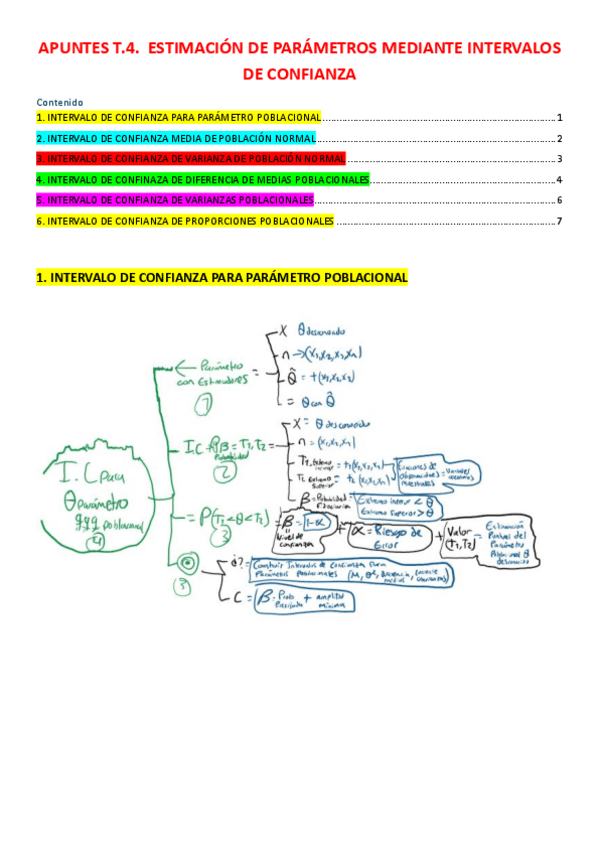 APUNTES T.4. ESTIMACIÓN DE PARÁMETROS MEDIANTE INTERVALOS
DE CONFIANZA
Contenido
1. INTERVALO DE CONFIANZA PARA PARÁMETRO POBLACIONAL 1
2. INTERVALO DE CONFIANZA MEDIA DE POBLACIÓN NORMAL 2
3. INTERVALO DE CONFIANZA DE VARIANZA DE POBLACIÓN NORMAL 3
4. INTERVALO DE CONFINAZA DE DIFERENCIA DE MEDIAS POBLACIONALES 4
5. INTERVALO DE CONFIANZA DE VARIANZAS POBLACIONALES 6
6. INTERVALO DE CONFIANZA DE PROPORCIONES POBLACIONALES 7
1. INTERVALO DE CONFIANZA PARA PARÁMETRO POBLACIONAL
I.C para
θ parámetro
poblacional
4
Parámetro
con Estimadores =
1
X θ desconocido
n → (x1, x2, x3, xn)
θ̂ = t(x1, x2, x2)
= θ con θ̂
I.C + β = T1, T2 =
Probabilidad
2
X = θ desconocido
n = (x1, x2, xn)
T1 Extremo inferior = t1(x1, x2, x3)
T2 Extremo Superior = t2(x1, x2, xn)
Funciones de
observaciones
muestrales
= Variables
aleatorias
β = Probabilidad
Fiduciaria
Extremo inferior < θ
Extremo Superior > θ
= P(T1 < θ < T2)
3
= β = 1-α
Nivel de
confianza
+ α = Riesgo de
Error
+ Valor
(T1, T2)
= Estimación
Puntual del
Parámetro
Poblacional θ
desconocido
3
¿? = Construir Intervalos de Confianza para
Parámetros Poblacionales
C = β = Prob. + amplitud
Fiduciada mínima